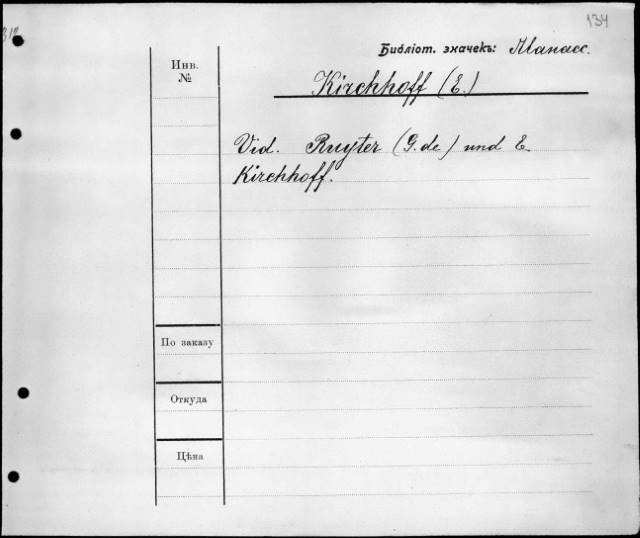 134
Библіот. значекъ: Атанасс.
Инв.
№
Kirchhoff (E.)
Vid. Ruyter (G. de) und E.
Kirchhoff.
По заказу
Откуда
Цѣна